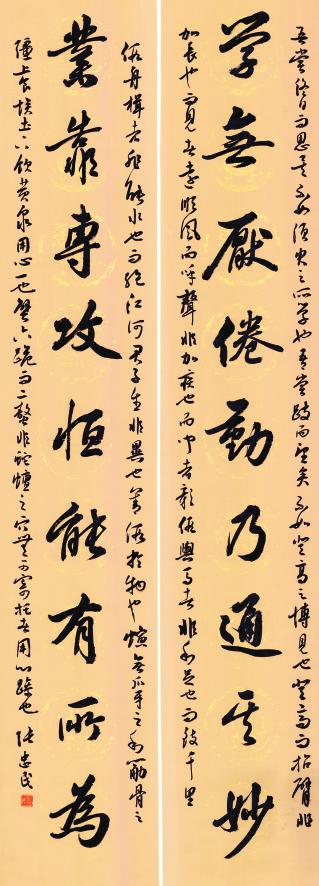 吾嘗終日而思矣不如須臾之所學也吾嘗跂而望矣不如登高之博見也登高而招臂非
学無厭倦勤乃通其妙
加長也而見者遠順風而呼聲非加疾也而聞者彰假輿馬者非利足也而致千里
假舟楫者非能水也而絕江河君子生非異也善假於物也螾無爪牙之利筋骨之
業靠専攻恒能有所為
強上食埃土下飲黄泉用心一也蟹六跪而二螯非蛇蟺之穴無可寄托者用心躁也 张忠民